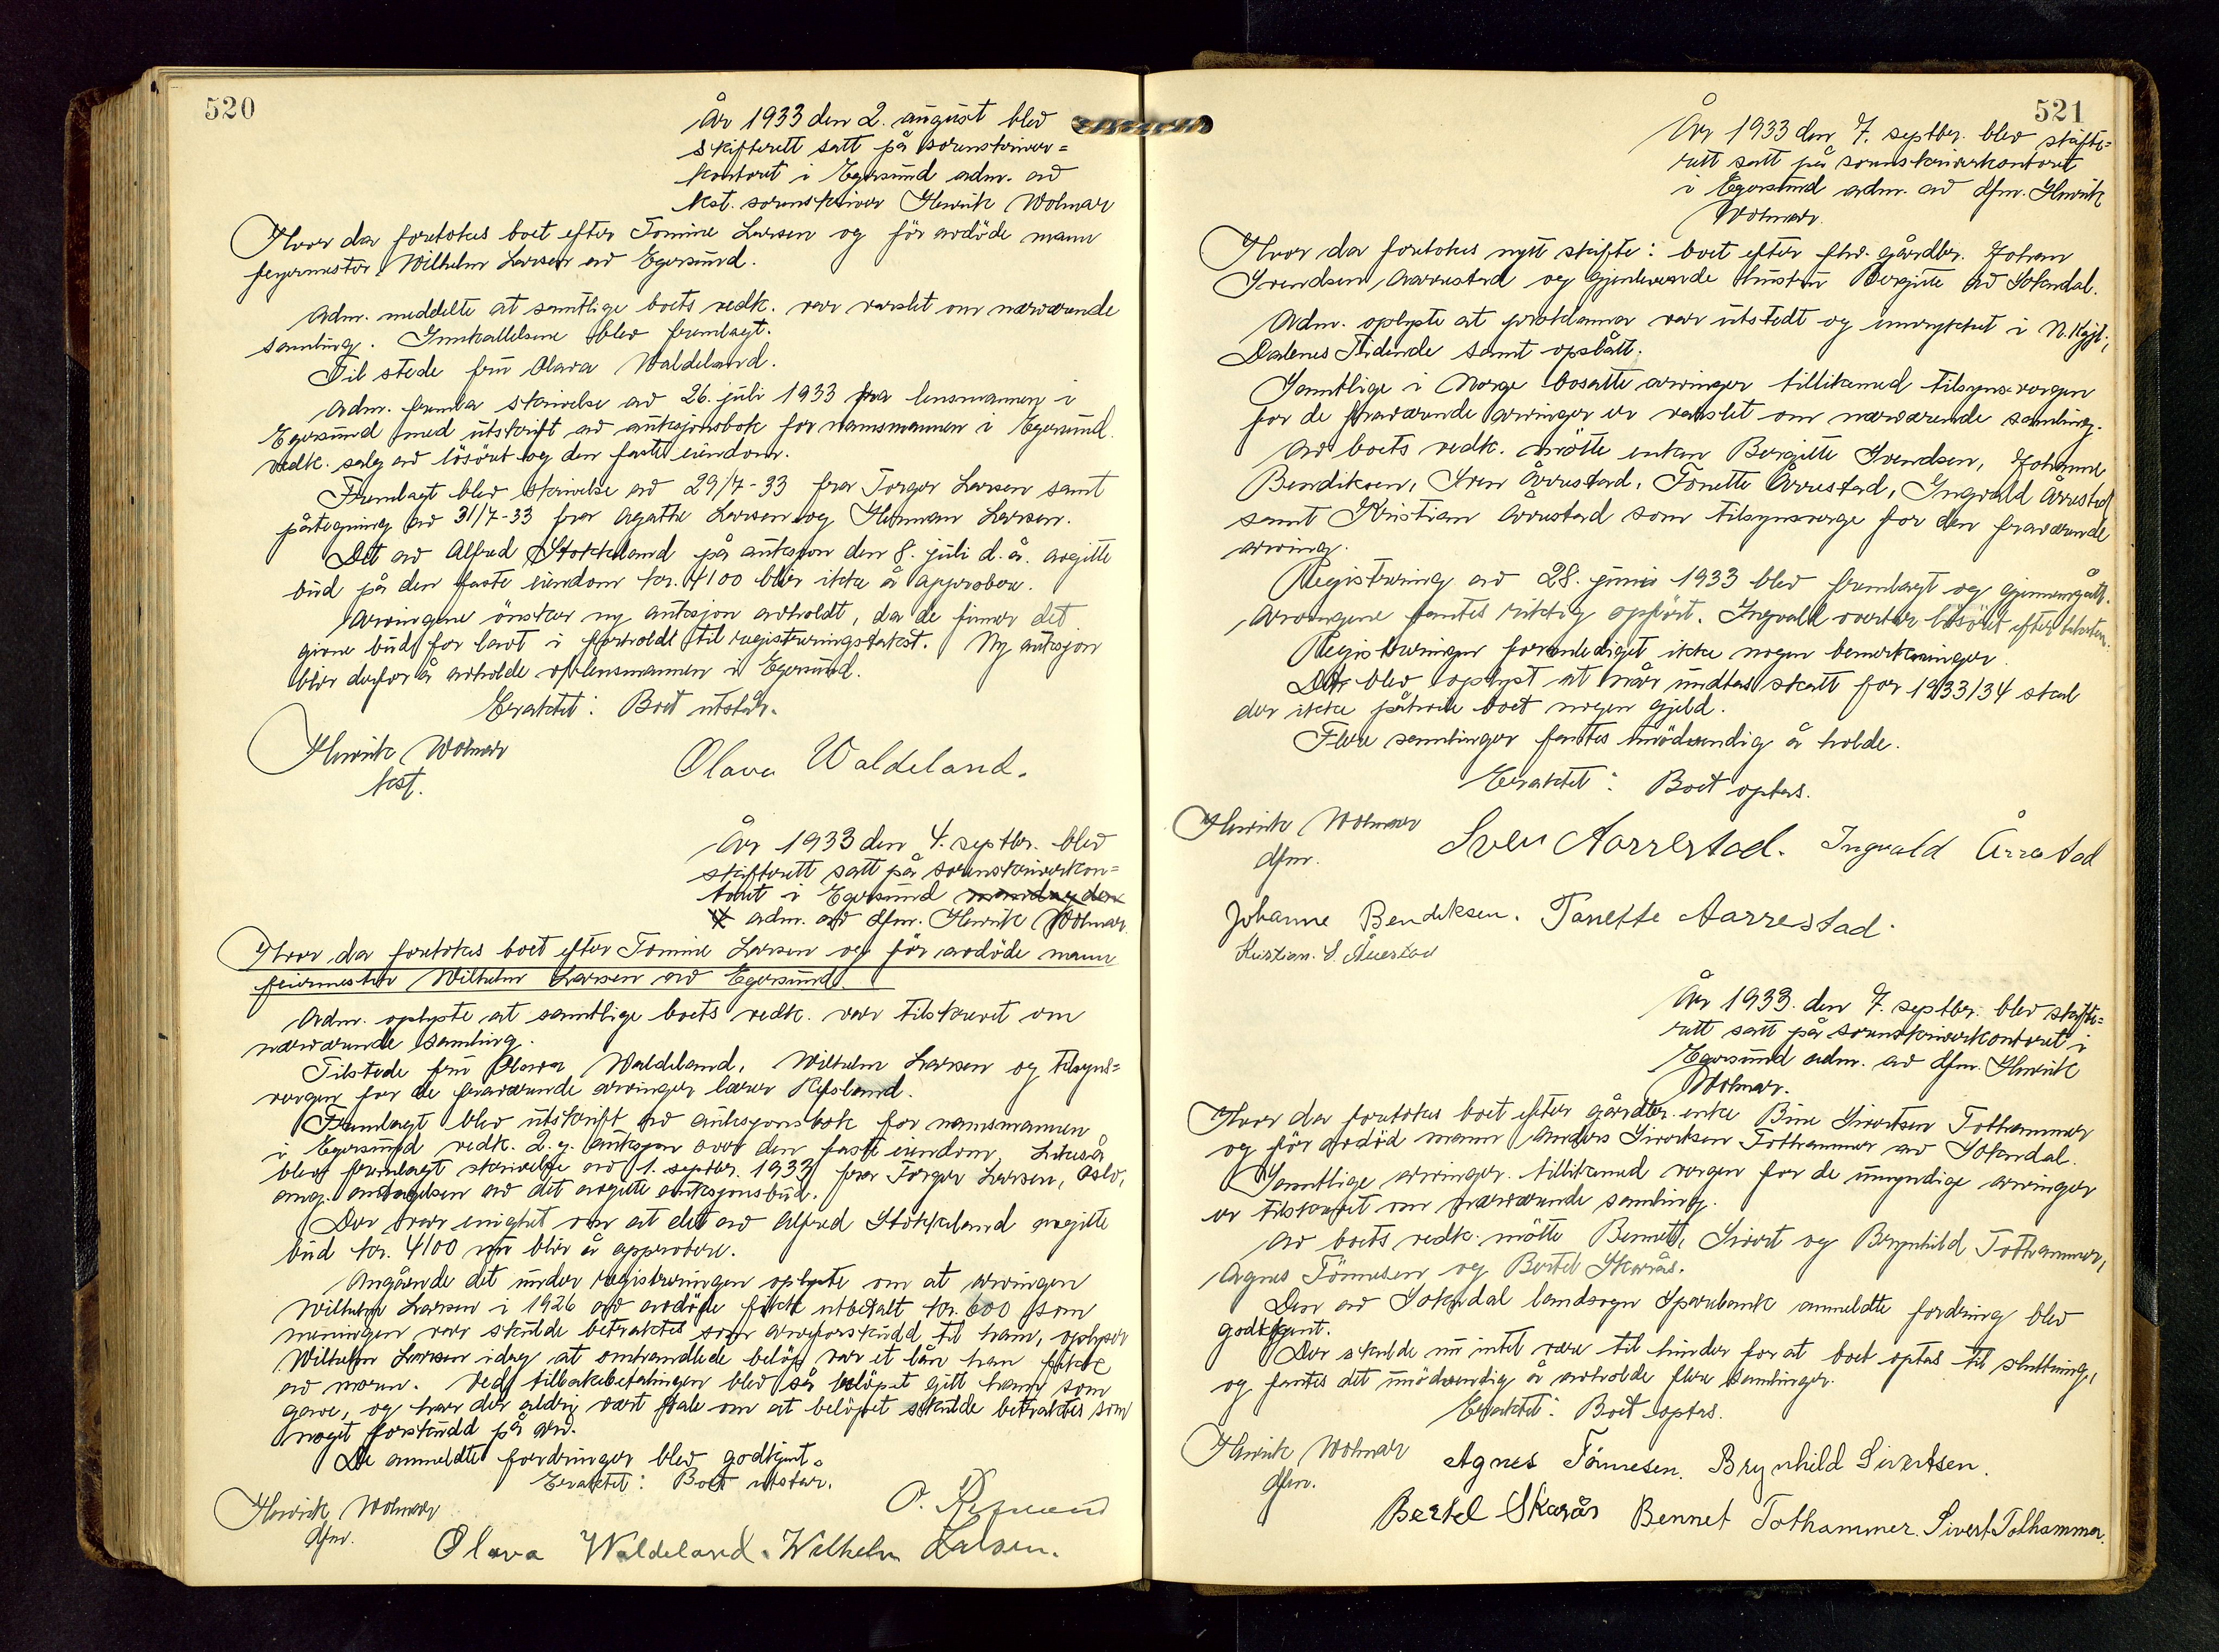 520
År 1933 den 2. august blev
skifterett satt på sorenskriver=
kontoret i Egersund adm. av
kst. sorenskriver Henrik Wolmar
Hvor da foretokes boet efter Tomine Larsen og før avdöde mann
feyermester Wilhelm Larsen av Egersund.
Adm. meddelte at samtlige boets vedk. var varslet om nærværende
samling. Innkallelsene blev fremlagt.
Til stede fru Olava Waldeland.
Adm. fremla skrivelse av 26. juli 1933 fra lensmannen i
Egersund med utskrift av auksjonsbok for namsmannen i Egersund
vedk. salg av lösöret og den faste eiendom.
Fremlagt blev skrivelse av 29/7-33 fra Torger Larsen samt
påtegning av 31/7-33 fra Agathe Larsen og Herman Larsen.
Det av Alfred Stokkeland på auksjon den 8. juli d.å. avgitte
bud på den faste eiendom kr. 4100 blir ikke å approbere.
Arvingene önsker ny auksjon avholdt, da de finner det
givne bud for lavt i forhold til registreringstakst. Ny auksjon
blir derfor å avholde av lensmannen i Egersund.
Eraktet: Boet utstår.
Henrik Wolmar
kst.
Olava Waldeland.
År 1933 den 4. septbr. blev
skifterett satt på sorenskriverkon=
toret i Egersund mandag den
4 adm. av dfm. Henrik Wolmar.
Hvor da foretokes boet efter Tomine Larsen og för avdöde mann
feiermester Wilhelm Larsen av Egersund.
Adm. oplyste at samtlige boets vedk. var tilskrevet om
nærværende samling.
Tilstede fru Olava Waldeland, Wilhelm Larsen og tilsyns=
vergen for de fraværende arvinger lærer Refsland.
Fremlagt blev utskrift av auksjonsbok for namsmannen
i Egersund vedk. 2.g. auksjon over den faste eiendom. Likeså
blev fremlagt skrivelse av 1. septbr. 1933 fra Torger Larsen, Oslo,
ang. antagelsen av det avgitte auksjonsbud.
Der var enighet om at det av Alfred Stokkeland avgitte
bud kr. 4100 nu blir å approbere.
Angående det under registreringen oplyste om at arvingen
Wilhelm Larsen i 1926 av avdöde fikk utbetalt kr. 600 som
meningen var skulde betraktes som arveforskudd til ham, oplyser
Wilhelm Larsen idag at omhandlede belöp var et lån han fikk
av moren. Ved tilbakebetalingen blev så belöpet gitt ham som
gave, og har det aldrig vært tale om at belöpet skulde betraktes som
noget forskudd på arv.
De anmeldte fordringer blev godkjent.
Eraktet: Boet utstår.
Henrik Wolmar
dfm.
O.
Olava Waldeland. Wilhelm Larsen.
521
År 1933 den 7. septbr. blev skifte=
rett satt på sorenskriverkontoret
i Egersund adm. av dfm. Henrik
Wolmar.
Hvor da foretokes nytt skifte: boet efter fhv. gårdbr. Johan
Svendsen Aarrestad og gjenlevende hustru Bergitte av Sokndal.
Adm. oplyste at proklama var utstedt og innrykket i N. Kgjt.,
Dalenes Tidende samt opslått.
Samtlige i Norge bosatte arvinger tillikemed tilsyns-vergen
for de fraværende arvinger er varslet om nærværende samling.
Av boets vedk. mötte enken Bergitte Svendsen, Johanne
Bendiksen, Sven Årrestad, Tonette Årrestad, Ingvald Årrestad
samt Kristian Årrestad som tilsynsverge for den fraværende
arving.
Registrering av 28. juni 1933 blev fremlagt og gjennemgått.
Arvingene fantes riktig opfört. Ingvald overtar lösöret efter taksten.
Registreringen foranlediget ikke nogen bemerkninger.
Der blev oplyst at når undtas skatt for 1933/34 skal
der ikke påhvile boet nogen gjeld.
Flere samlinger fantes unödvendig å holde.
Eraktet: Boet optas.
Henrik Wolmar
dfm.
Sven Aarrestad. Ingvald Årrestad
Johanne Bendiksen. Tanette Aarrestad.
Kristian. S. Årrestad
År 1933. den 7. septbr. blev skifte=
rett satt på sorenskriverkontoret i
Egersund adm. av dfm. Henrik
Wolmar.
Hvor da foretokes boet efter gårdbr. enke Bine Sivertsen Tothammer
og för avdöd mann Anders Sivertsen Tothammer av Sokndal.
Samtlige arvinger tillikemed vergen for de umyndige arvinger
er tilskrevet om nærværende samling.
Av boets vedk. mötte Bennet, Sivert og Brynhild Tothammer,
Agnes Tönnesen og Bertel Skarås.
Den av Sokndal landsogn Sparebank anmeldte fordring blev
godkjent.
Der skulde nu intet være til hinder for at boet optas til slutning,
og fantes det unödvendig å avholde flere samlinger.
Eraktet: Boet optas.
Henrik Wolmar
dfm.
Agnes Tönnesen. Brynhild Sivertsen.
Bertel Skarås Bennet Tothammer. Sivert Tothammer.